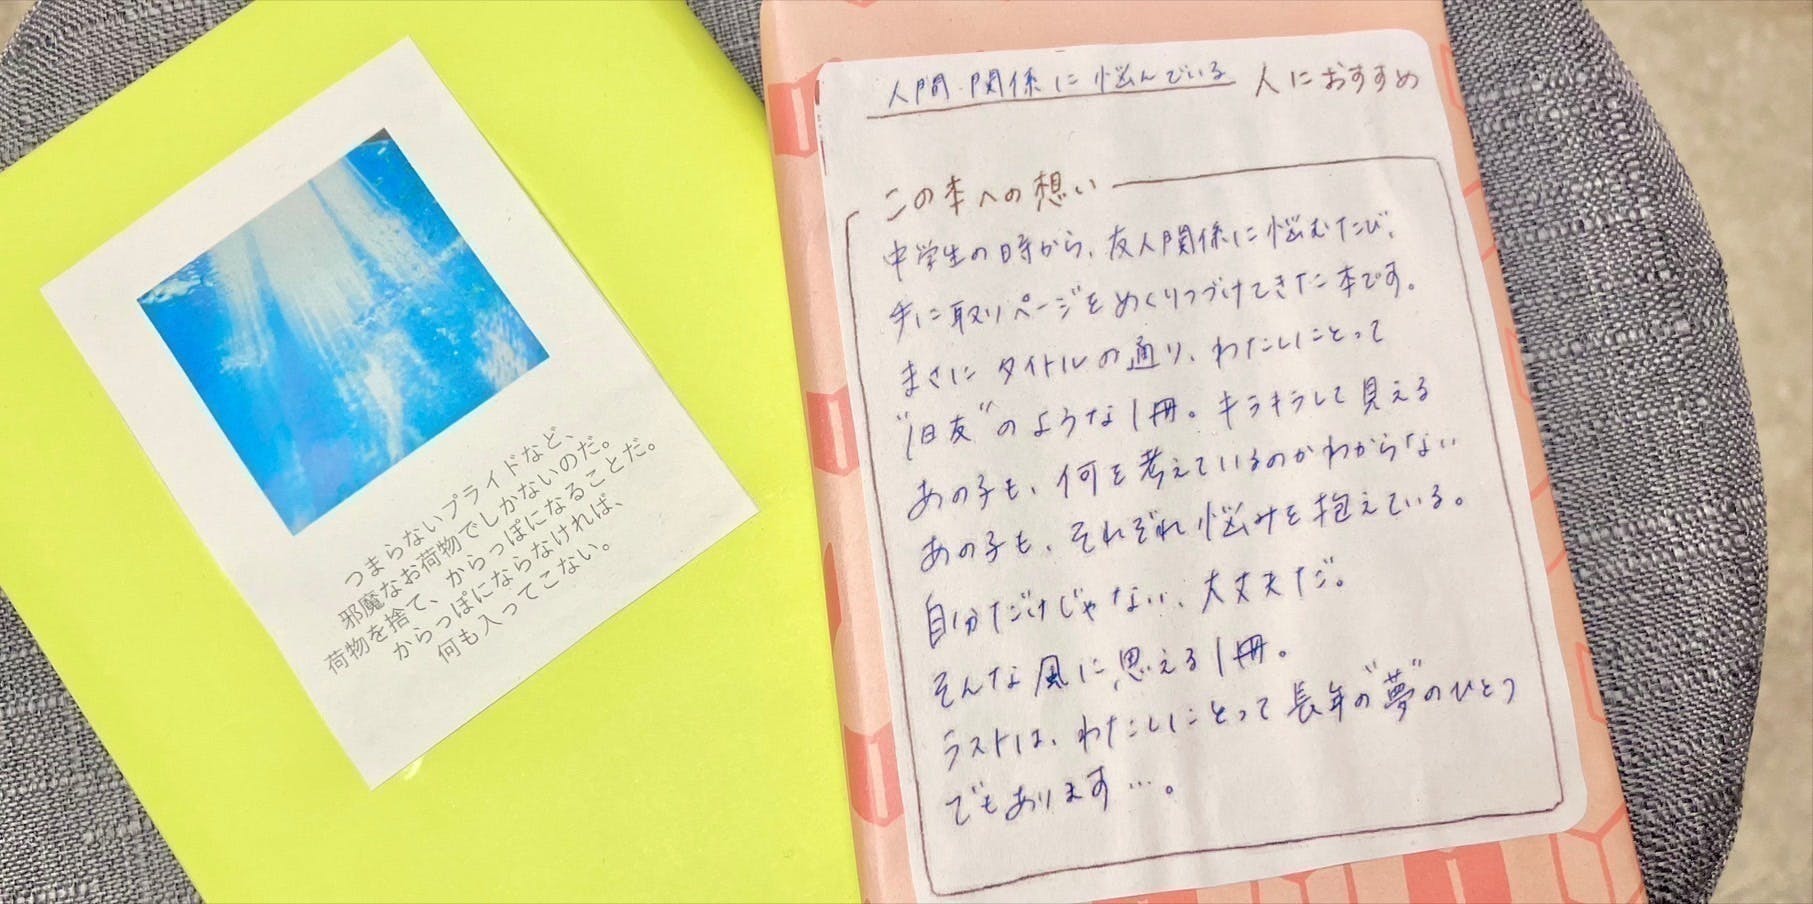 つまらないプライドなど、
邪魔なお荷物でしかないのだ。
荷物を捨て、からっぽになることだ。
からっぽにならなければ、
何も入ってこない。
人間関係に悩んでいる 人におすすめ
この本への想い
中学生の時から、友人関係に悩むたび、
手に取りページをめくりつづけてきた本です。
まさにタイトルの通り、わたしにとって
"旧友"のような1冊。キラキラして見える
あの子も、何を考えているのかわからない
あの子も、それぞれ悩みを抱えている。
自分だけじゃない、大丈夫だ。
そんな風に思える1冊。
ラストは、わたしにとって長年の"夢"のひとつ
でもあります…。